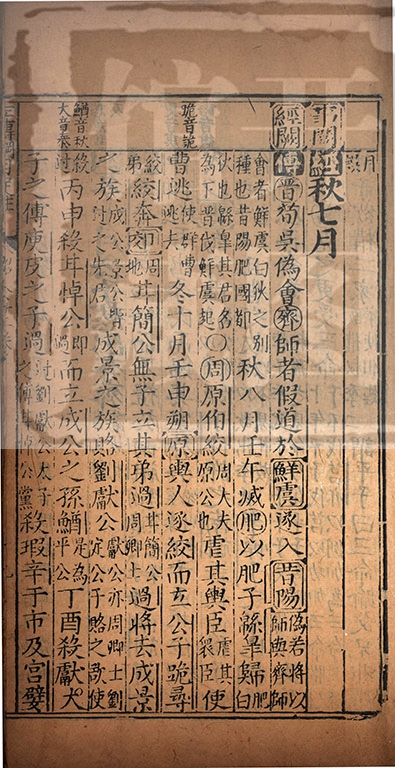 經秋七月
傳晉荀吳偽會齊師者假道於鮮虞遂入昔陽偽若將以師與齊師
會者鮮虞白狄之别種也昔陽肥國都秋八月壬午滅肥以肥子緜皐歸肥白
狄也緜皐其君名為下晉伐鮮虞起○周原伯絞周大夫原公也虐其輿臣虐其衆臣使
曹逃使群曹逃去冬十月壬申朔原輿人逐絞而立公子跪尋
絞奔郊周地甘簡公無子立其弟過甘簡公周卿士過將去成景
之族成公景公皆過之先君成景之族賂劉獻公
丙申殺甘悼公而立成公之孫鰌丁酉殺獻太
子之傅庾皮之子過殺瑕辛于市及宮嬖
跪音詭
鰌音秋
大音泰